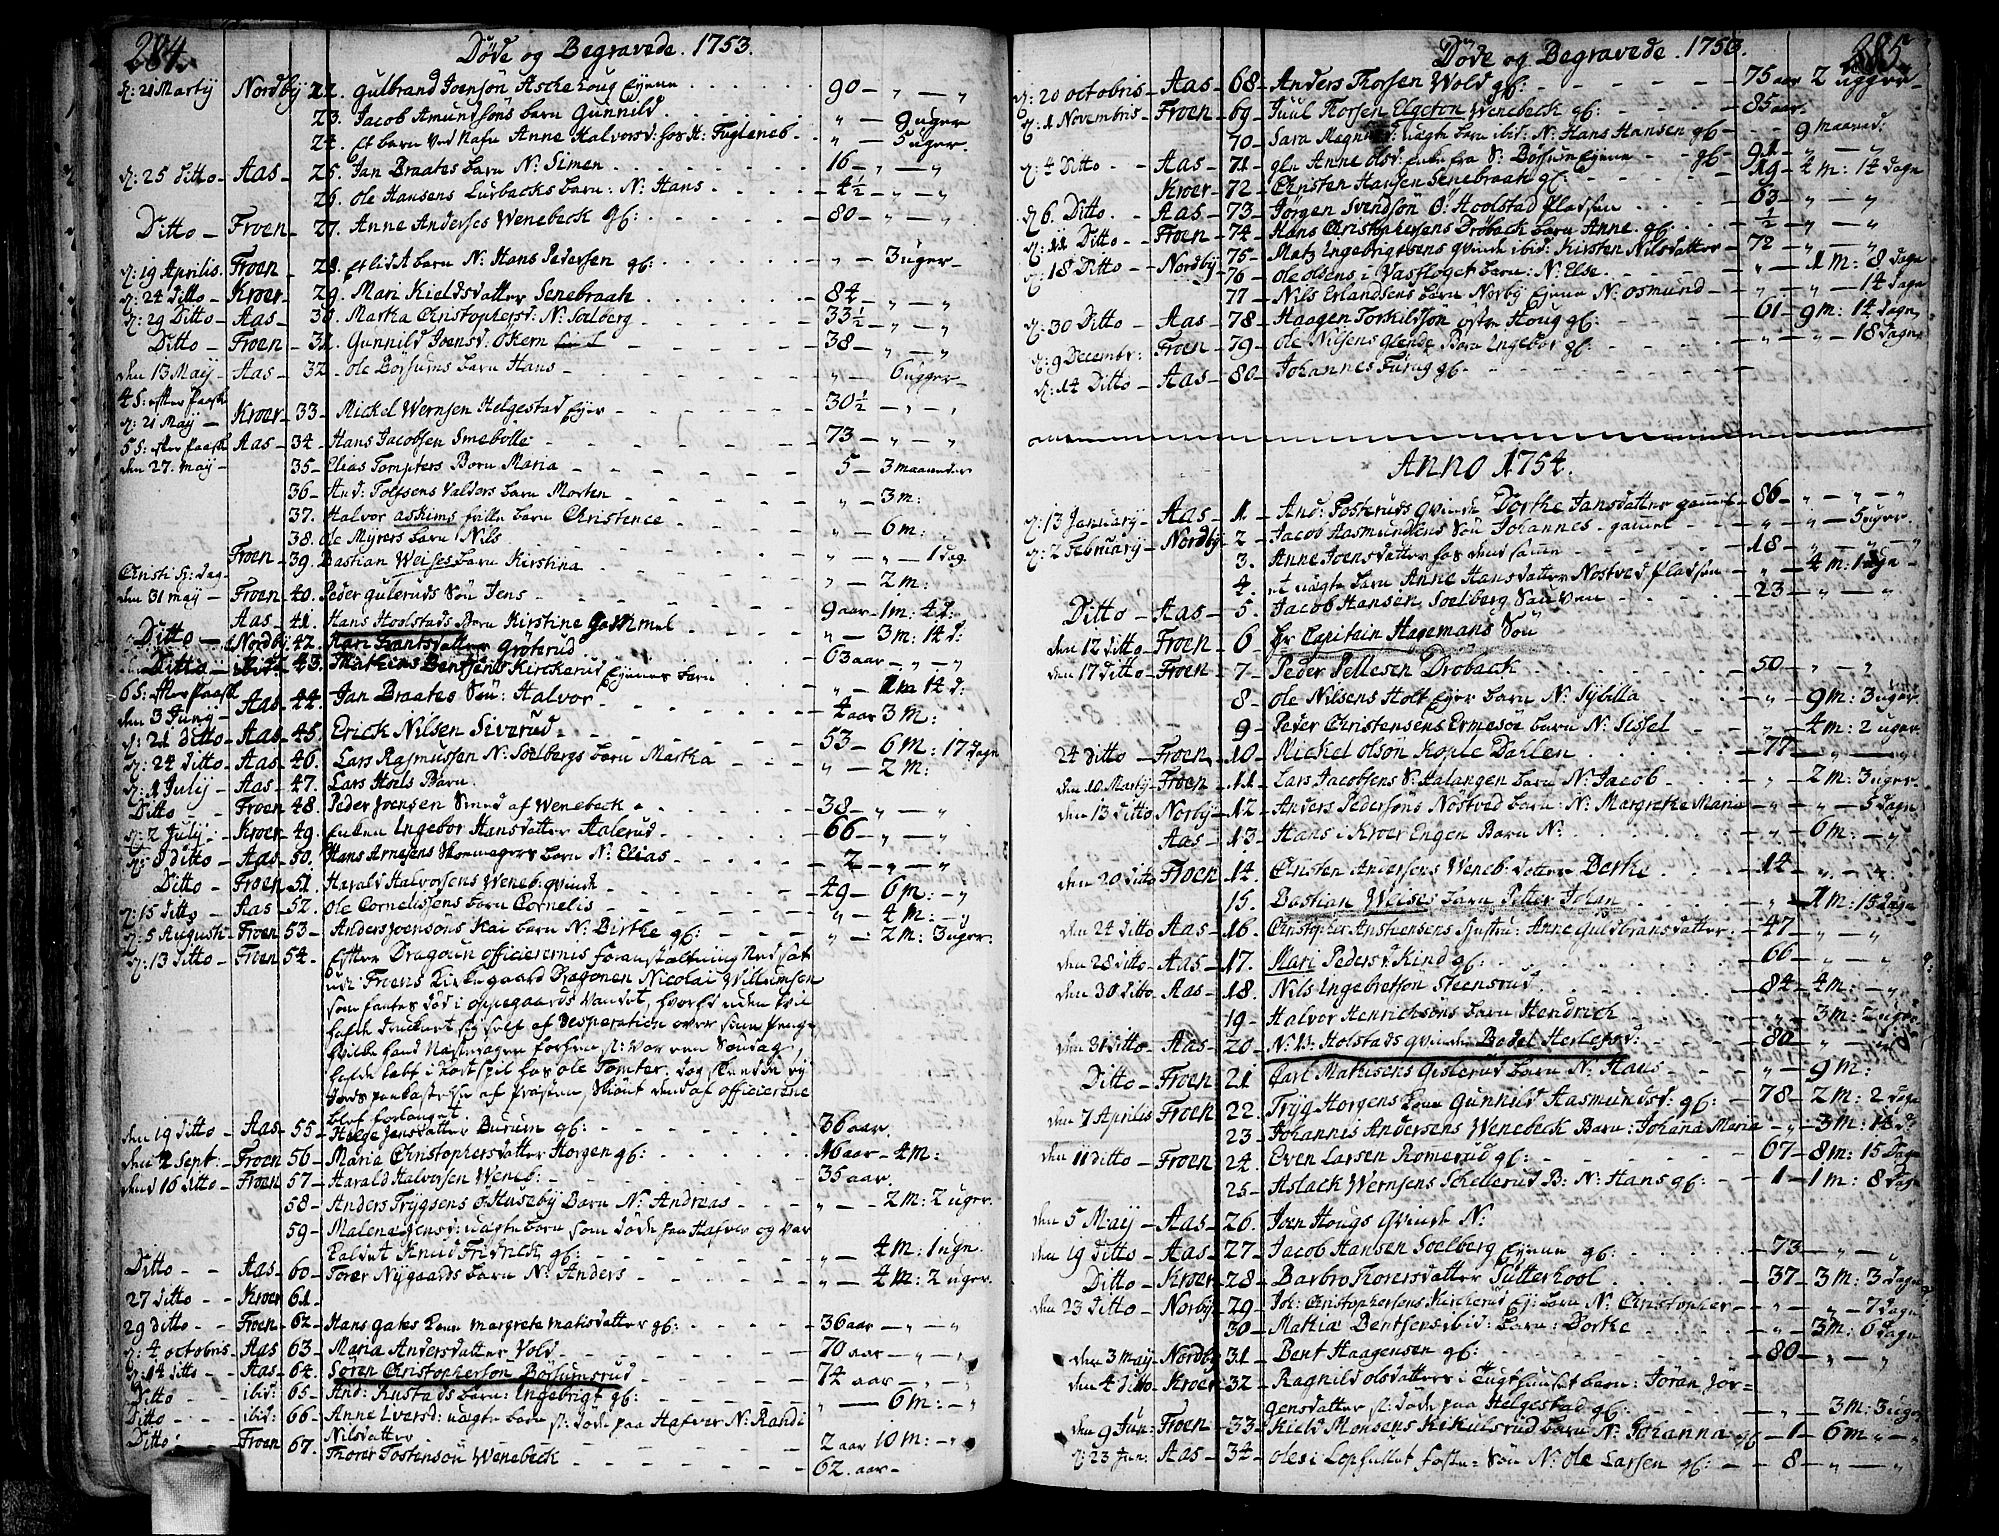 284.
Døde og Begravede. 1753.
d: 21 Martij Nordby 22. Gulbrand Joensön Aschehoug Eyene 90 - „ - „
23. Jacob Amundsöns barn Gunnild „ - 9 uger
24. Et barn ved Nafn Anne Halvorsd hos H: Fugleneb „ - 5 uger.
d: 25 Ditto - Aas - 25. Jan Braates barn N: Simen 16 - „ - „
26. Ole Hansens barn: N: Hans 4½ - „ - „
Ditto - Froen - 27. Anne Anderses Wenebeck gl: 80 - „ - „
d: 19 Aprilis. Froen - 28. Et lidet barn N: Hans Pedersen gl: „ - 3 uger
d: 24 Ditto - Kroer - 29. Mari Kieldsdatter Senebraak 84 - „ - „
d: 29 Ditto - Aas - 30. Martha Christophersd: N: Soelberg 33½ - „ - „
Ditto - Froen - 31. Gunnild Joensd: Okern 38 - „ - „
den 13 Maij - Aas - 32. Ole Börsums barn Hans - „ - 6 ugger
4 S: efter Paaske
d: 21 Maij - Kroer - 33 - Mickel Wernsen Helgestad Eyer 30½ - „ - „
5 S: efter Paaske Aas - 34 - Hans Jacobsen Smebölle 73 - „ - „
den 27. may - 35 - Elias Tomters Barn Maria 5 - 3 maaneder
36 - And: Tolfsens Valders barn Morten „ - 3 m:
37. Halvor Askims barn Christence „ - 6 m:
38. Ole Myrers barn Nils
Froen - 39. Bastian Weises barn Kirstina „ - „ - 1 dag.
Christi H: dag
den 31 may - Froen - 40. Peder Guleruds Sön Jens „ - 2 m:
Aas - 41. Hans Hoolstads Barn Kirstine Gammel 9 aar - 1 m: 4 d:
Ditto - Nordby 42. Kari Frantsdatter Gröterud „ - 3 m: 14 d:
Ditto - ibid: 43. Mathias Bentsens Kirkerud Eyeres barn 63 aar - „ - „
6 S: efter Paaske
den 3 Juny - Aas - 44. Jan Braates Sön: Halvor „ - 1 m 14 d:
d: 21 ditto - Aas - 45. Erick Nilsen Siverud 4 aar 3 m:
d: 24 ditto - Aas - 46. Lars Rasmussen N: Soelbergs barn Martha 53 - 6 m: 17 dagn
d: 1 July - Aas - 47. Lars Hoels Barn „ - 2 m:
Ditto - Froen - 48. Peder Joensen Smed af Wenebeck 38 - „ - „
d: 2 July - Kroer - 49. Enken Ingebor Hansdatter Aalerud 66 - „ - „
d: 8 ditto - Aas - 50. Hans Arnesens Skomagers barn N: Elias 2 - „ - „
Ditto - Froen - 51. Harald Halvorsens Weneb: qvinde 49 - 6 m: - „
d: 15 ditto - Aas - 52. Ole Cornelissens barn Cornelis „ - 4 m: - „
d: 5 August - Froen - 53 - Anders Joensöns Kai barn N: Birthe gl: „ - 2 m: 3 uger:
d: 13 ditto - Froen - 54. Efter Dragoun officierernis foranstaltning Nedsat
udi Froens Kirkegaard Dragonen Nicolai Willumsen
som fantes död i oppegaards vandet, hvorhd uden tvil
hafde druckent sig self af desperation over sine Penge
hvilke hand Natten forhen som var en Söndag
hafde tabt i kortspil hos Ole Tomter. dog skede ey
Jords paakastelse af Præsten, skiönt dend af officierene
blef forlanget.
den 19 ditto - Aas - 55 - Helge Jansdatter Burum gl: 36 aar.
den 2 Sept: - Froen 56 - Maria Christophersdatter Horgen gl: 16 aar - 4 m:
dend 16 ditto - Froen - 57 - Harald Halvorsens Weneb: 35 aar.
58 - Anders Trygsens Ö Huseby Barn N: Andreas „ - 2 m: 2 uger.
59 - Malene Jensd: uægte barn som döde paa Hafver og var
kaldet Knud Fridrich gl: „ - 4 m: 1 ugn.
Ditto - Aas - 60 - Torer Nygaards barn N: Anders „ - 4 m: 2 uger.
27 ditto - Kroer 61 -
29 ditto - Froen - 62 - Hans Gates kone Margrete Matisdatter gl: 36 aar - „ - „
d: 4 octobris - Aas - 63 - Maria Andersdatter Vold 70 aar - „ - „
d: 14 ditto - Aas - 64. Sören Christophersön Börsumsrud 74 aar - „ - „
Ditto ibid: - 65 - And: Rustads barn: Ingebrigt gl: „ - 6 m: - „
Ditto - ibid: - 66 - Anne Iversd: uægte barn st: döde paa Hafver N: Randi
Nilsdatter 2 aar 10 m: - „
Ditto - Froen - 67. Thorer Tostensön Wenebeck 62. aar -
285
Döde og Begravede. 1753.
d: 20 octobris - Aas - 68 - Anders Thorsen Wold gl: 75 aar 2 ugger
d: 1 Novembris - Froen - 69 - Juul Thorsen Elgeton Wenebeck gl: 85 aar.
70 - Sara Magnusd: uægte barn ibid: N: Hans Hansen gl - 9 maaned:
d: 4 Ditto - Aas - 71 - gl: Anne Olsd: Enke fra S: Börsum Eyene gl - 91 - „ - „
Kroer - 72 - Christen Hansen Senebraak gl: 19 - 4 m: 14 dagn
d: 6. Ditto - Aas - 73 - Jörgen Svendsön Ö: Hoolstad Pladsen 63 - „ - „
d: 11 Ditto - Froen - 74 - Hans Christophersens Dröbach barn Anne gl: ½ - „ - „
d: 18 Ditto - Nordby - 75 - Matz Ingebrigtsens qvinde ibid: Kirsten Nilsdatter 72 - „ - „
76 - Ole Olsens i Vasfloget barn: N: Else „ - 1 m: 8 dagn
77 - Nils Erlandsens barn Norby Eyene N: Osmund „ - „ - 14 dagn
d: 30 Ditto - Aas - 78 - Haagen Torkildsön östre Houg gl: 61 - 9 m: 14 dagn
d: 9 Decembr: - Froen - 79 - Ole Nilsens Glende barn Ingebor gl: „ - „ - 18 dagn
d: 14 Ditto - Aas - 80 - Johannes Furug gl -
Anno 1754.
d: 13 January - Aas - 1 - And: Fosteruds qvinde Dorthe Jansdatter gamel - 86 - „ - „ - „
d: 2 February - Nordby - 2 - Jacob Hasmundsens Sön Johannes - gamel „ - „ - 5 uger.
3. Anne Joensdatter hos dend samme 18 - „ - „ - „
4. et uægte barn Anne Hansdatter Nöstved Pladsen „ - 4 m: 1 dagn
Ditto - Aas - 5 - Jacob Hansen Soelberg Sön 23 - „ - „
den 12 ditto - Froen - 6 - Hr Capitain Hagemans Sön
den 17 ditto - Froen - 7 - Peder Pellesen Dröback 50 - „ - „
8 - Ole Nilsens Holt Eyer barn N: Sybilla „ - 9 m: 3 uger.
9 - Peder Christensens Ermesöe barn N: Sissel „ - 4 m: 2 uger
24 ditto - Froen - 10 - Mickel Olson Kople Dahlen 77 - „ - „
den 10 Marty Froen - 11 - Lars Jacobsens N: Halangen barn N: Jacob „ - 2 m: 3 uger.
den 13 ditto Norby - 12 - Anders Pedersöns Nöstvid barn: N: Margrethe Maria „ - „ - 5 dagn
Aas - 13 - Hans i Kroer Engen Barn N: „ - 6 m: - „
den 20 ditto Froen 14. Christen Andersens Weneb: datter Berthe 14 - „ - „
15. Bastian Weises barn Petter Johan „ - 1 m: 15 dagn
den 24 ditto Aas - 16. Christopher Ansteensens Hustru: Anne Guldbransdatter 47 - „ - „
den 28 ditto - Aas - 17. Mari Pedersd: Kind gl: 66 - „ - „
den 30 ditto Aas - 18. Nils Ingebretson Steensrud 84 - 4 m: - „
19 - Halvor Henrichsöns barn Hendrick „ - 3 m: 2 uger
den 31 ditto - Aas - 20 - N: Holstads qvinde Bodel Herlofsd: 80 - „ - „
Ditto - Froen - 21 - Carl Mathisens Gislerud barn N: Hans „ - 9 m:
den 7 Aprilis Froen 22. Tryg Horgens kone Gunnild Aasmundsd: gl: 78 - 2 m: 2 dagn
23 - Johannes Andersens Wenebeck Barn: Johana Maria „ - 3 m: 14 d:
den 11 ditto - Froen - 24. Even Larsen Romerud gl: 67 - 8 m: 15 dagn
25 - Aslack Wernsens Skellerud B: N: Hans gl: 1 - 1 m: 8 dagn
den 5 Maij - Aas - 26 - Joen Hougs qvinde N:
den 19 ditto - Aas - 27 - Jacob Hansen Soelberg Eyene gl: 73 - „ - „
Ditto - Kroer - 28 - Barbro Thorersdatter Sutterhool 37 - 3 m: 3 dagn
den 23 ditto - Norby - 29 - Joh: Christophersens Kirkerud Ey: barn N: Christopher „ - „ - 7 dagn
30 - Mathia Bentsens ibid: barn: Dorthe „ - 3 m: 6 dagn
den 3 may - Nordby 31 - Bent Haagensen gl: 80 - „ - „
den 4 ditto - Kroer - 32 - Ragnild Olsdatters i Tugthuuset barn: Jöran Jör-
gensdatter st: döde paa Helgestad gl: „ - 3 m: 3 uger
den 9 Jun: - Froen - 33 - Kield Monsens Kikulsrud barn N: Johanna gl 1 - 6 m „ - „
d: 23 Jun: - Aas - 34 - Oles i Lophullet foste - Sön N: Ole Larsen gl: 8 - „ - „